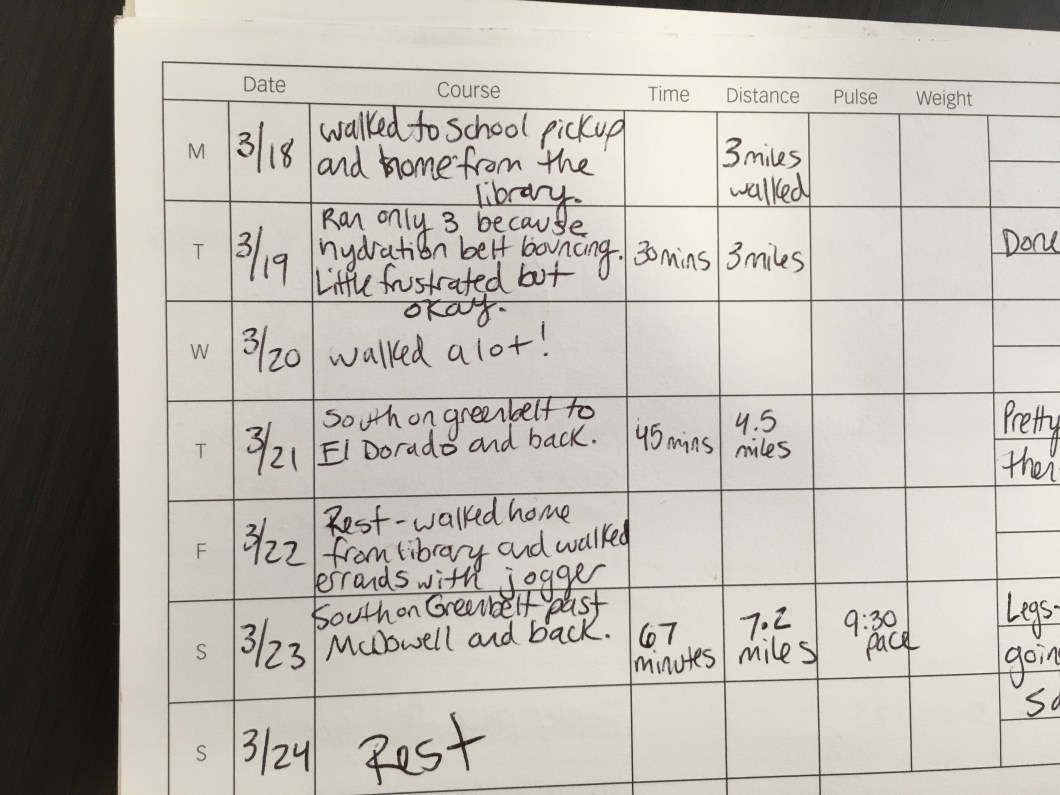 Date Course Time Distance Pulse Weight
M 3/18 walked to school pickup
and home from the
library.
3 miles
walked
T 3/19 Ran only 3 because
hydration belt bouncing.
Little frustrated but
okay.
30 mins 3 miles Done
W 3/20 walked a lot!
T 3/21 South on greenbelt to
El Dorado and back.
45 mins 4.5
miles
Pretty
F 3/22 Rest - walked home
from library and walked
errands with jogger
S 3/23 South on Greenbelt past
McDowell and back.
67
minutes
7.2
miles
9:30
pace
Legs-
S 3/24 Rest